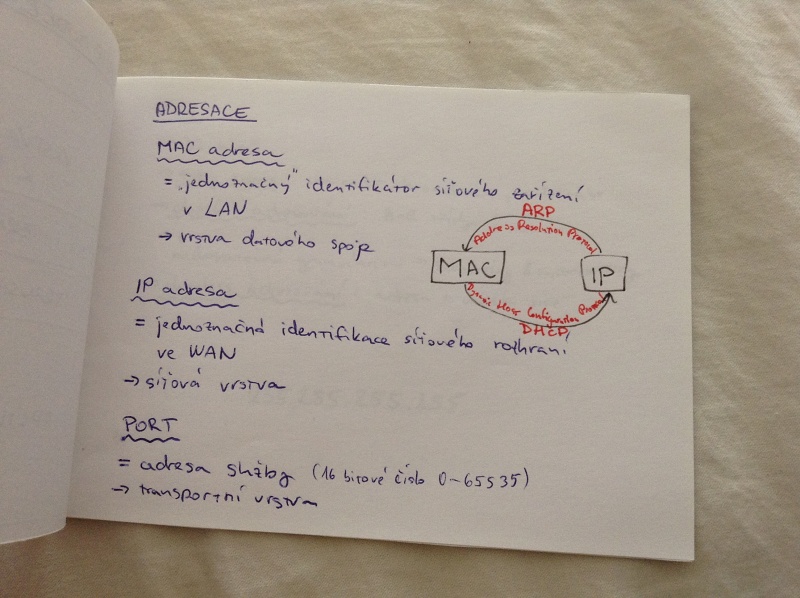 ADRESACE
MAC adresa
= „jednoznačný" identifikátor síťového zařízení
v LAN
→ vrstva datového spoje
ARP
Address Resolution Protocol
MAC
IP
Dynamic Host Configuration Protocol
DHCP
IP adresa
= jednoznačná identifikace síťového rozhraní
ve WAN
→ síťová vrstva
PORT
= adresa služby (16 bitové číslo 0-65535)
→ transportní vrstva